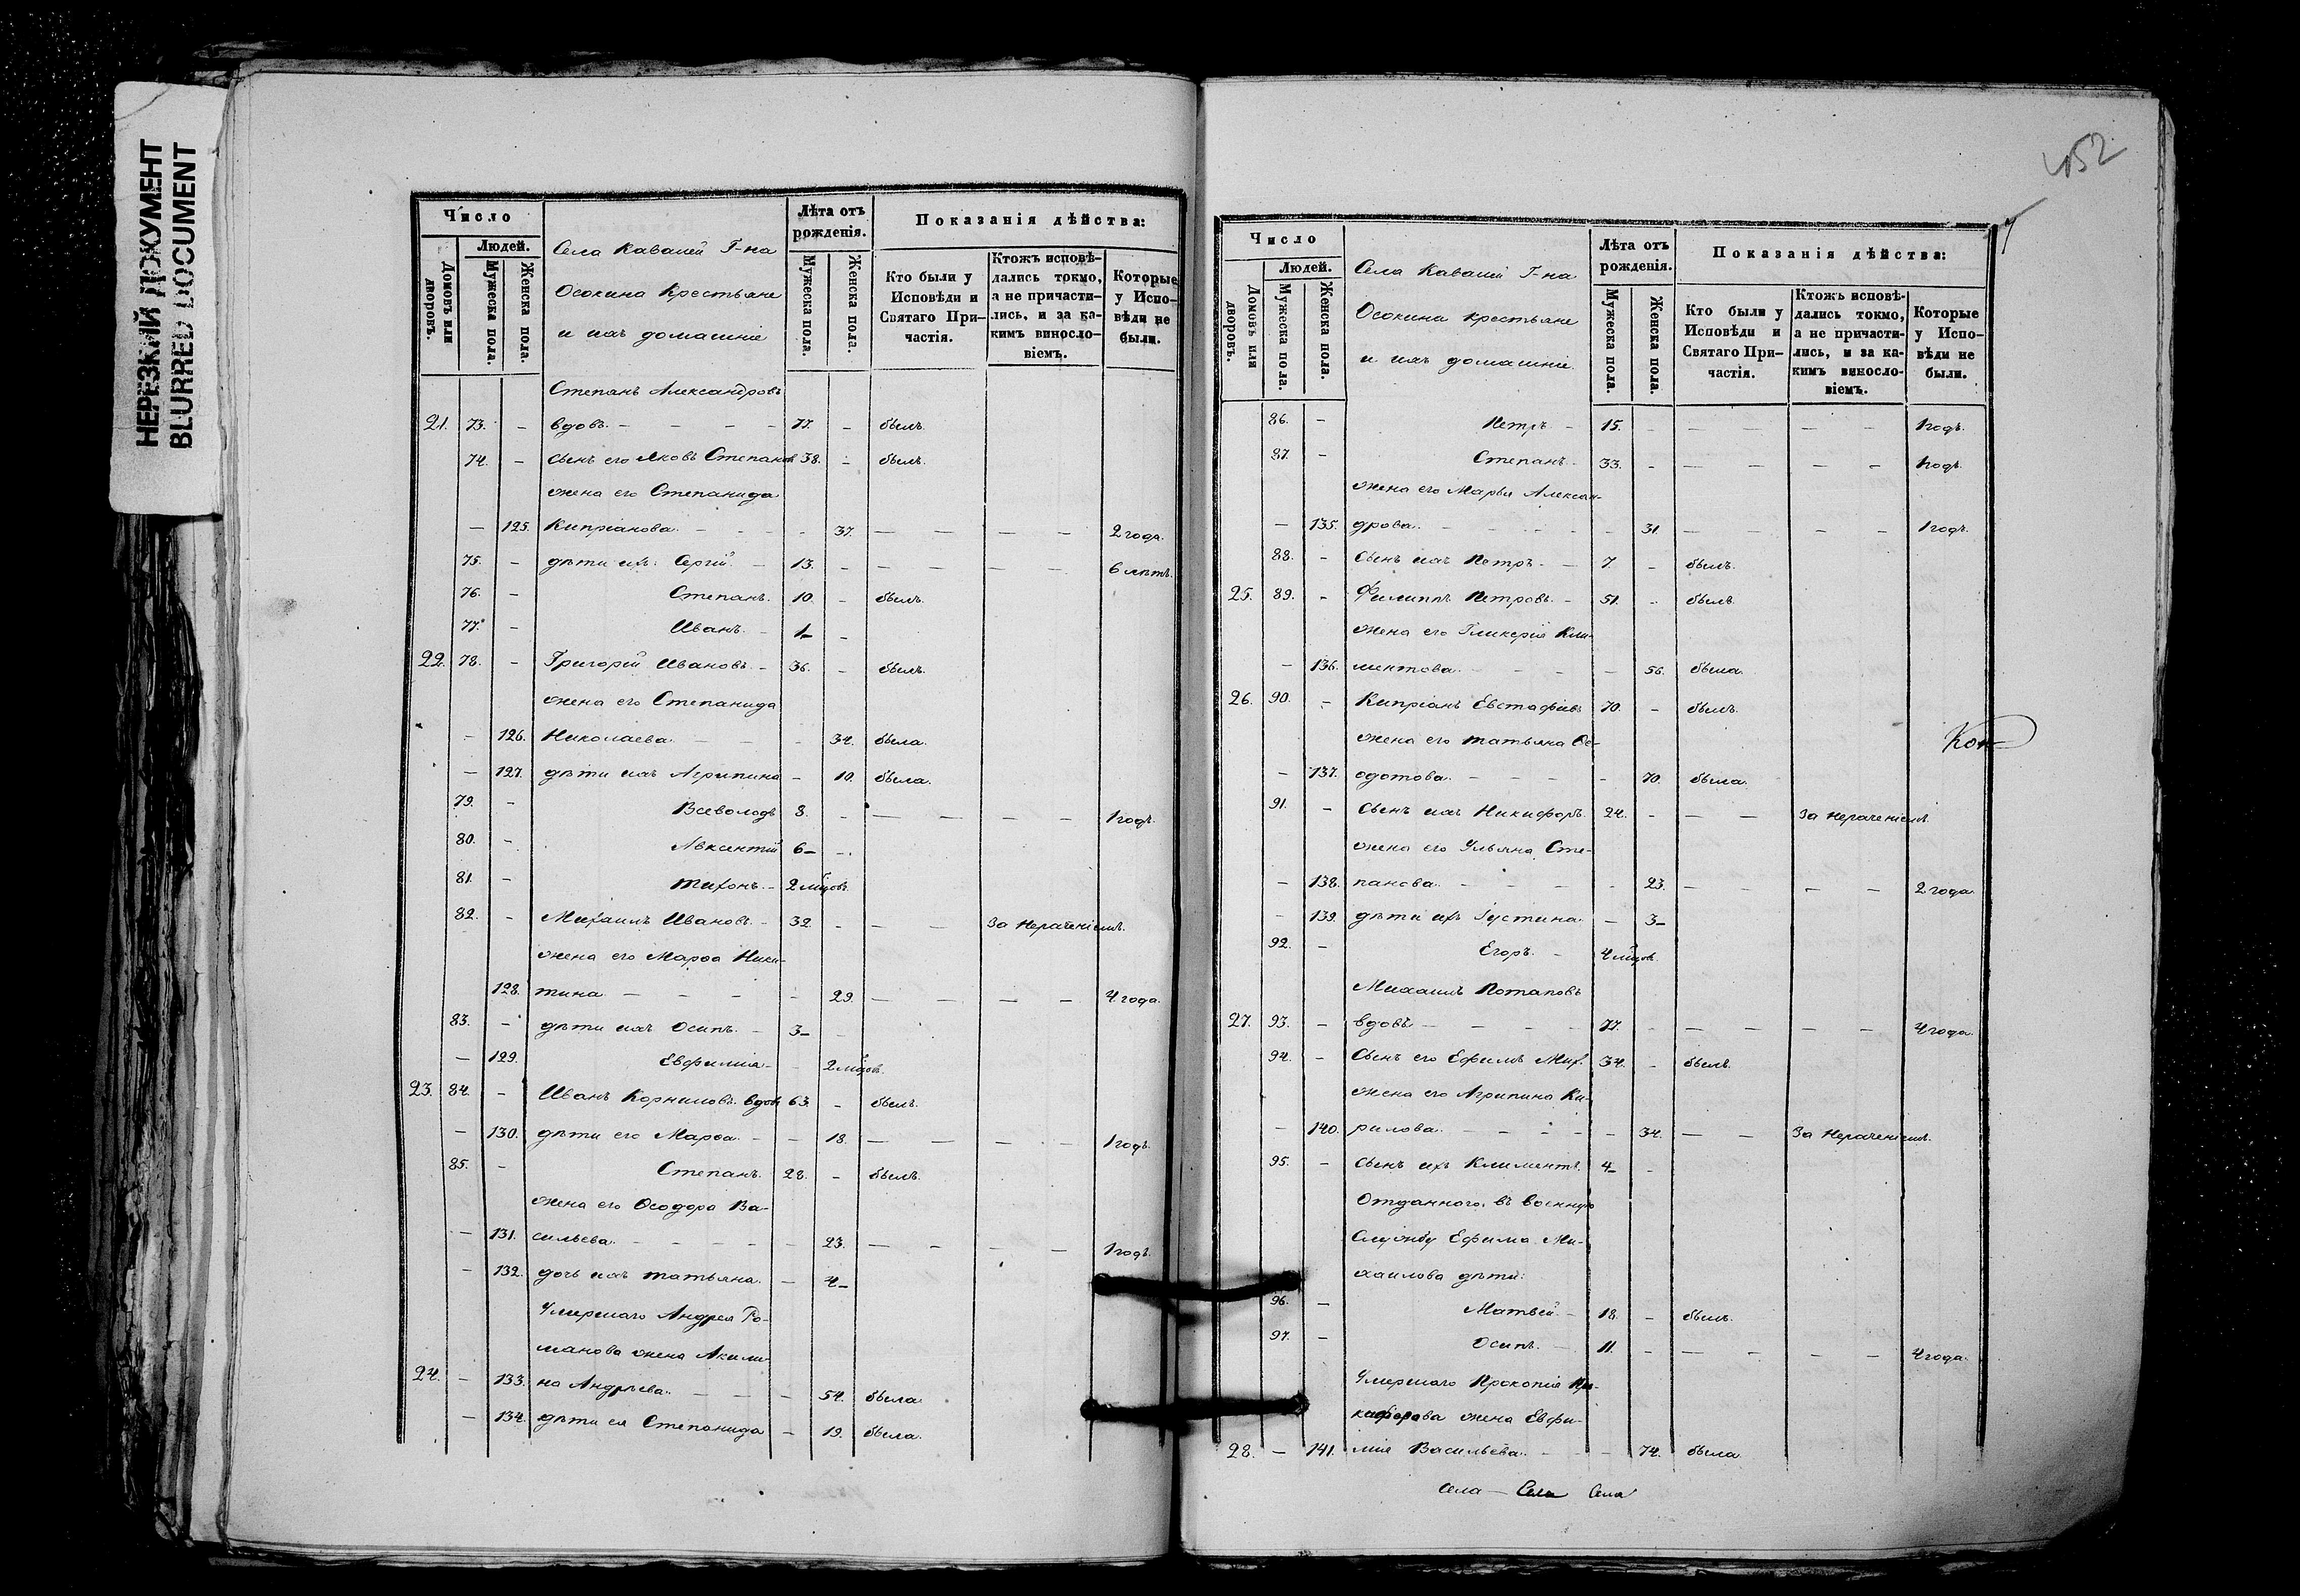 НЕРЕЗКИЙ ДОКУМЕНТ
BLURRED DOCUMENT
Число
Людей.
Домовъ или дворовъ.
Мужеска пола.
Женска пола.
Села Кавалей Г-на
Осокина Крестьяне
и ихъ домашніе
Лѣта отъ рожденія.
Мужеска пола.
Женска пола.
Показанія дѣйства:
Кто были у Исповѣди и Святаго При-частія.
Ктожъ исповѣ-дались токмо, а не причасти-лись, и за ка-кимъ винослo-віемъ.
Которые у Испо-вѣди не были.
Степанъ Александровъ
21. 73. - вдовъ. - - - - 77. - былъ.
74. - сынъ его Яковъ Степановъ 38. - былъ.
жена его Степанида
- 125. Кипріанова. - - - - 37. - - - - 2 года.
75. - дѣти ихъ: Сергій. - 13. - - - - - 6 лѣтъ.
76. - Степанъ. 10. - былъ.
77. - Иванъ. - 1- -
22. 78. - Григорій Ивановъ. - 36. - былъ.
жена его Степанида
- 126. Николаева. - - - 34. была.
- 127. дѣти ихъ Агрипина - 10. была.
79. - Всеволодъ 8. - - - - - 1 годъ.
80. - Авксентій 6- -
81. - Тихонъ. - 2 мѣцовъ.
82. - Михаилъ Ивановъ. - 32. - - - За нераченіемъ.
жена его Марѳа Ники-
128. тина. - - - - 29. - - - - 4 года.
83. - дѣти ихъ Осипъ. - 3- -
- 129. Евфимія. - - 2 мѣцовъ.
23. 84. - Иванъ Корниловъ вдовъ 63. - былъ.
- 130. дѣти его Марѳа. - - 18. - - - - 1 годъ.
85. - Степанъ. 28. - былъ.
жена его Ѳеодора Ва-
- 131. сильева. - - - - - 23. - - - - 1 годъ.
- 132. дочь ихъ Татьяна. - 4-
Умершаго Андрея Ро-
манова жена Акили-
24. - 133. на Андрѣева. - - - 54. была.
- 134. дѣти ея Степанида - 19. была.
452
7
Число
Людей.
Домовъ или дворовъ.
Мужеска пола.
Женска пола.
Села Кавалей Г-на
Осокина крестьяне
и ихъ домашніе.
Лѣта отъ рожденія.
Мужеска пола.
Женска пола.
Показанія дѣйства:
Кто были у Исповѣди и Святаго При-частія.
Ктожъ исповѣ-дались токмо, а не причасти-лись, и за ка-кимъ винослo-віемъ.
Которые у Испо-вѣди не были.
86. - Петръ. - 15. - - - - - 1 годъ.
87. - Степанъ. 33. - - - - - 1 годъ.
жена его Марья Алексан-
- 135. дрова. - - - - - 31. - - - - 1 годъ.
88. - Сынъ ихъ Петръ. - 7. - былъ.
25. 89. - Филиппъ Петровъ. - 51. - былъ.
жена его Гликерія Кли-
- 136. ментова. - - - - 56. была.
26. 90. - Кипріанъ Евстафіевъ 70. - былъ.
жена его Татьяна Ѳе-
- 137. одотова. - - - - - 70. была.
91. - Сынъ ихъ Никифоръ. 24. - - - За нераченіемъ.
жена его Ульяна Сте-
- 138. панова. - - - - - 23. - - - 2 года.
- 139. дѣти ихъ Іустина. - 3-
92. - Егоръ. - 4 мѣцовъ.
Михаилъ Потаповъ
27. 93. - вдовъ - - - - 77. - - - - - 4 года.
94. - Сынъ его Ефимъ Мих. 34. - былъ.
жена его Агрипина Ки-
- 140. рилова. - - - - - 34. - - За нераченіемъ.
95. - Сынъ ихъ Климентъ. 4- -
Отданного въ военную
Службу Ефима Ми-
хаилова дѣти:
96. - Матвей. - 18. - былъ.
97. - Осипъ. - 11. - - - - - 4 года.
Умершаго Прокопія Ни-
кифорова жена Евфи-
28. - 141. мія Васильева. - - - 74. была.
Кон
Села - Села Села